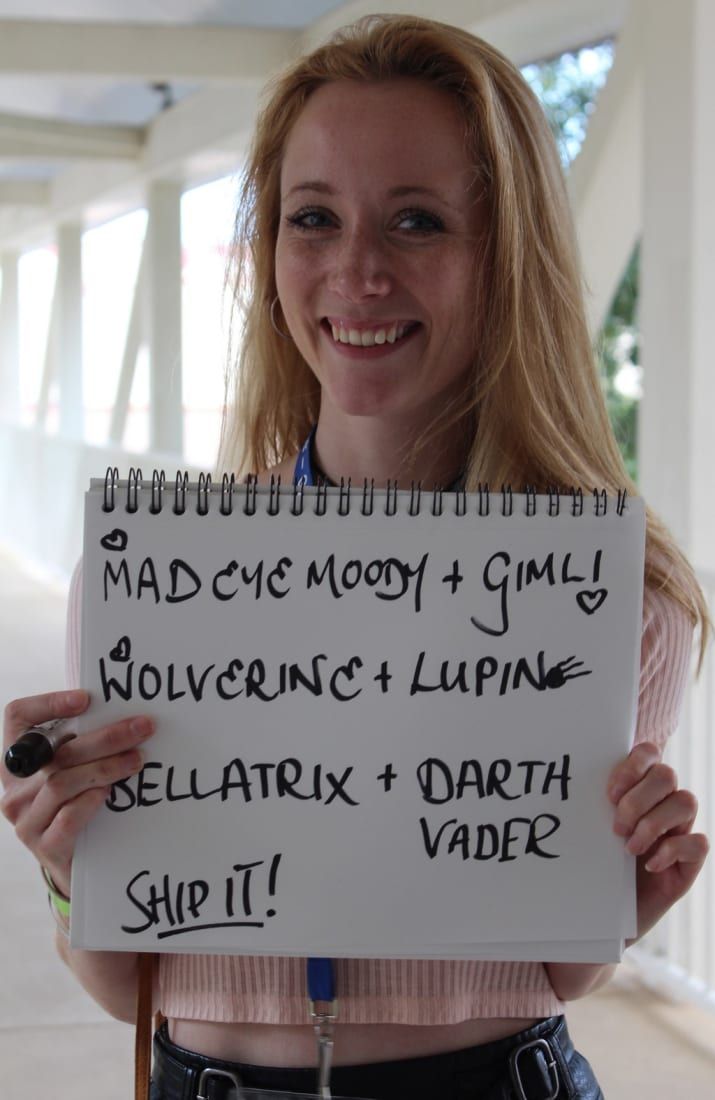 MAD EYE MOODY + GIMLI
WOLVERINE + LUPIN
BELLATRIX + DARTH
VADER
SHIP IT!